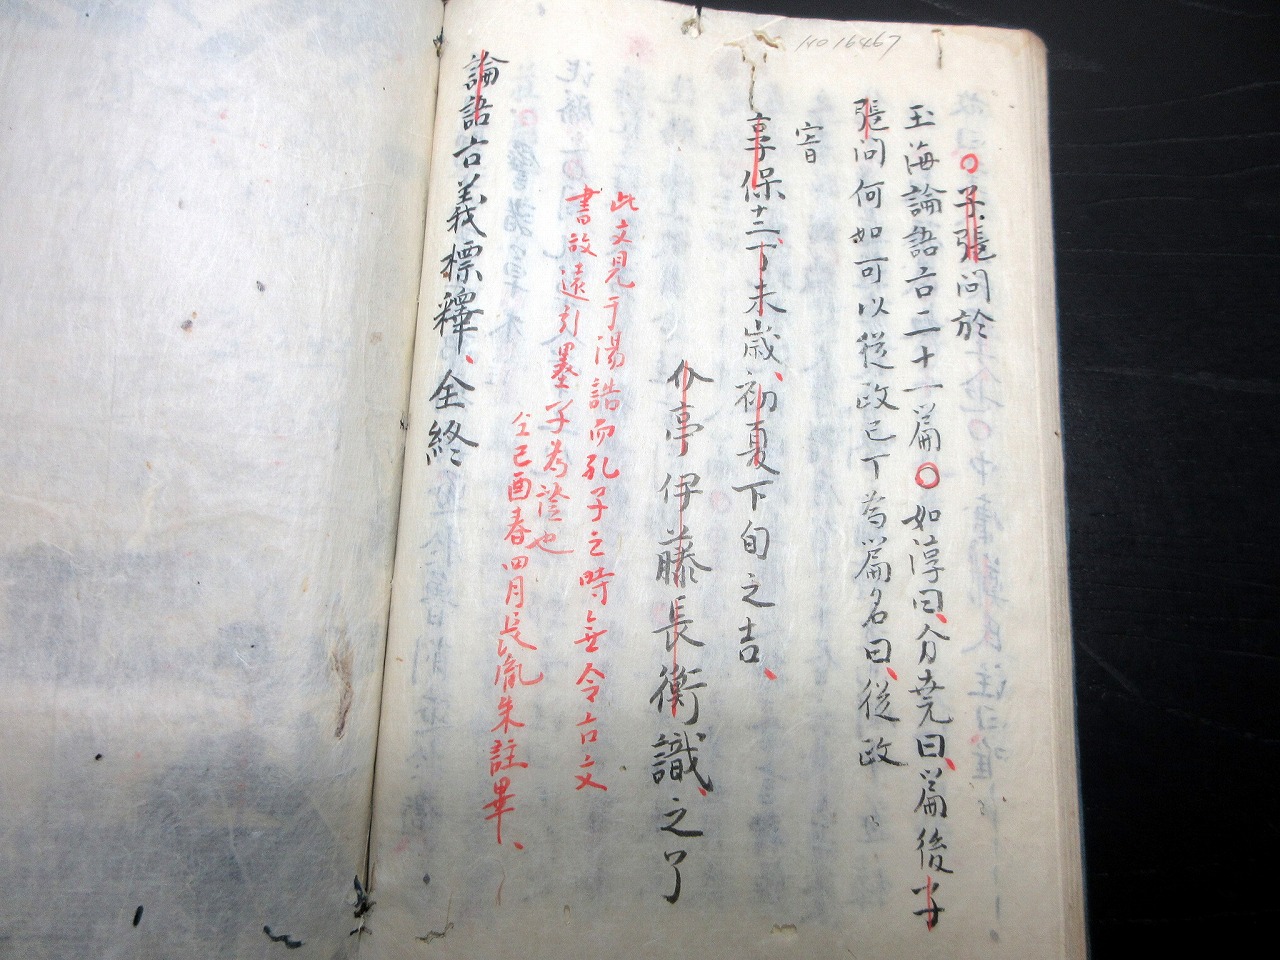 140 16467
○子張問於
玉海論語古二十一篇○如淳曰、分堯曰、篇後子
張問何如可以從政已下為篇名曰、從政
享保十二、丁未歳、初夏下旬之吉、
介亭伊藤長衡識之了
此文見于湯誥而孔子之時無今古文
書故遠引墨子為證也
仝己酉春四月長胤朱註畢、
論語古義標釋、全終